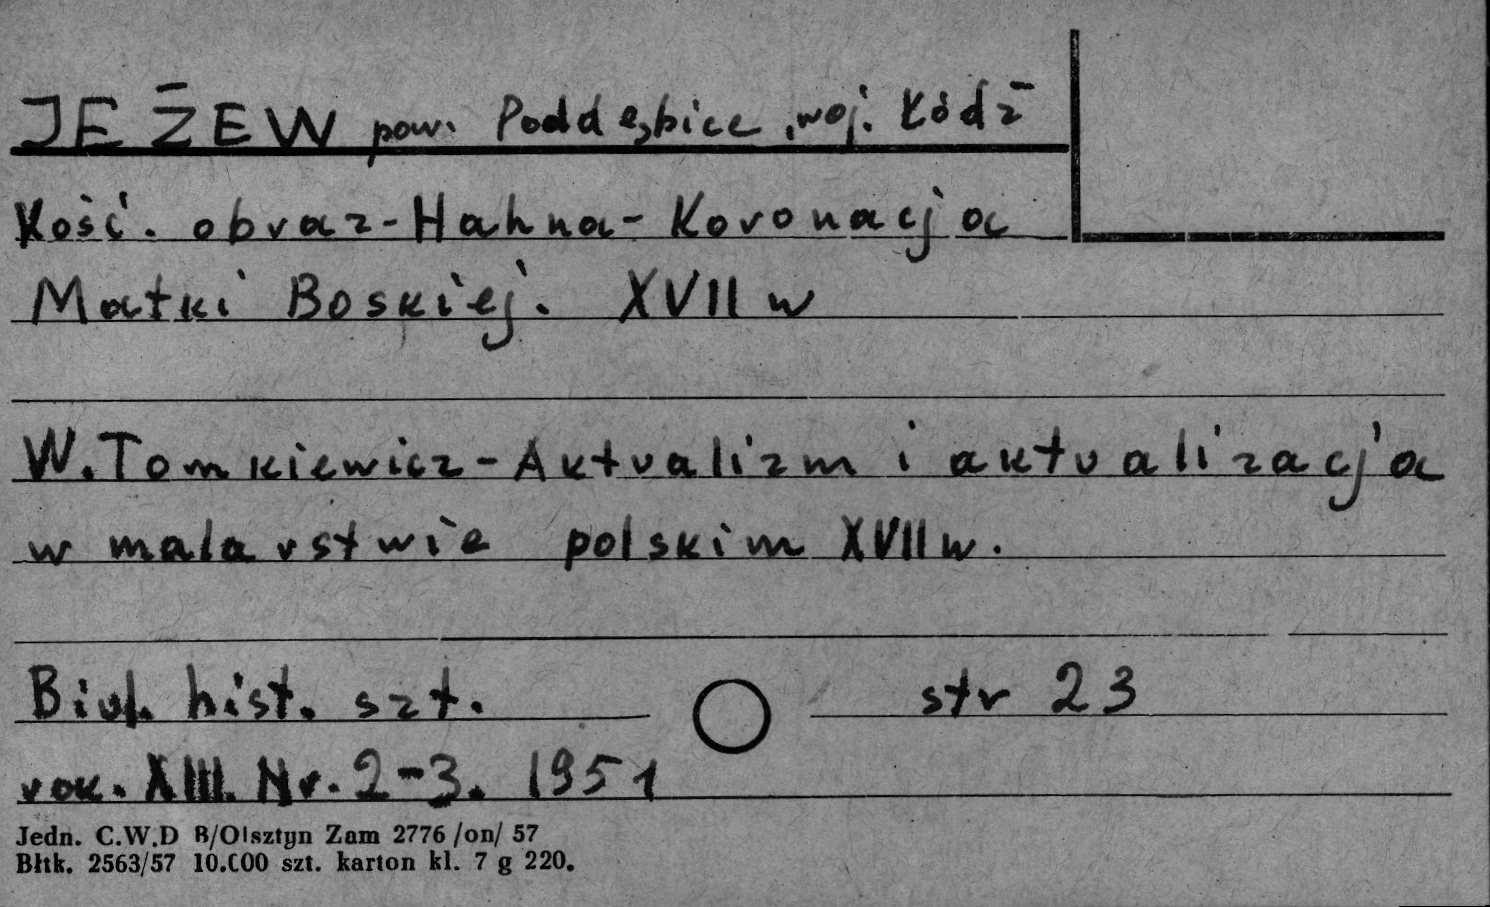 JEŻEW pow. Poddębice, woj. Łódź
Kość. obraz-Hahna-Koronacja
Matki Boskiej. XVII w
W. Tomkiewicz-Aktualizm i aktualizacja
w malarstwie polskim XVII w.
Biul. hist. szt. str 23
rok. XIII. Nr. 2-3. 1951
Jedn. C.W.D B/Olsztyn Zam 2776 /on/ 57
Błtk. 2563/57 10.000 szt. karton kl. 7 g 220.